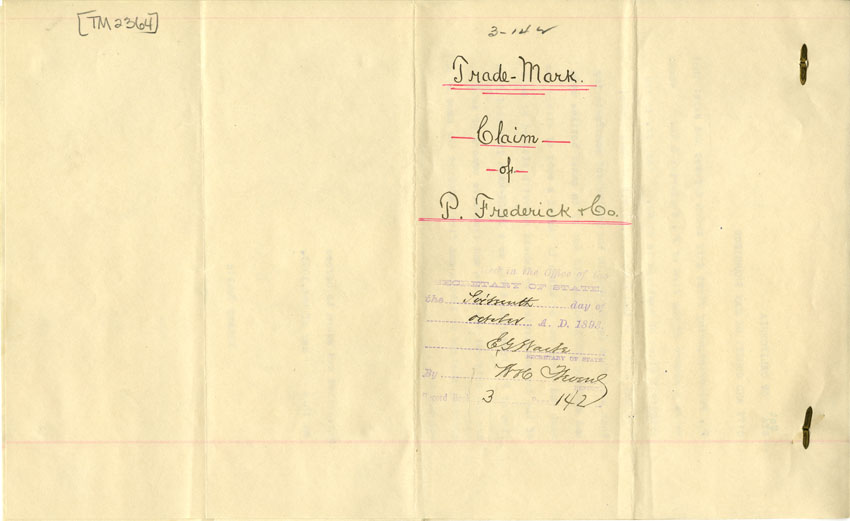 [TM2364]
3-142
Trade-Mark.
Claim
of
P. Frederick & Co.
in the Office of the
SECRETARY OF STATE,
the Sixteenth day of
October A. D. 1893.
E. G. Waite
SECRETARY OF STATE
By
Record Book 3 Page 142